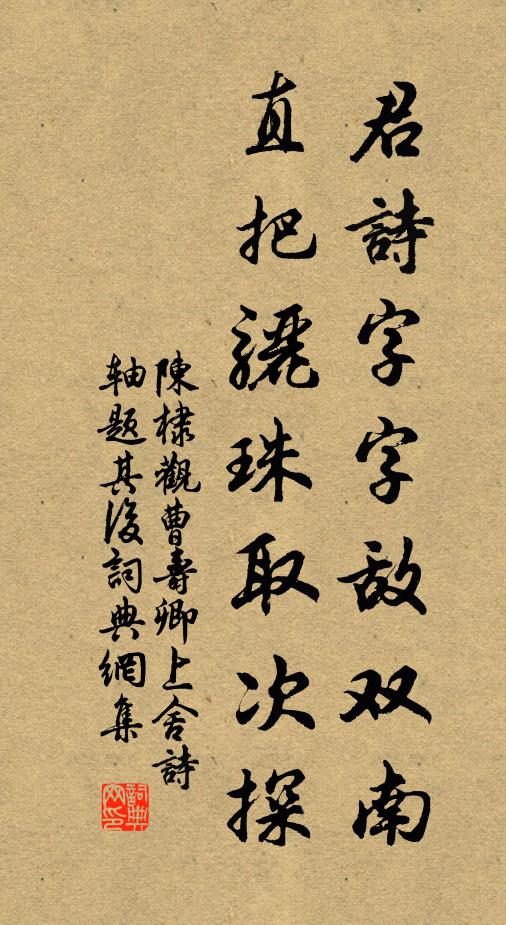 君詩字字敌双南
直把驪珠取次探
陳棣觀曹壽卿上舍詩
軸題其後詞典網集
詞典
网印